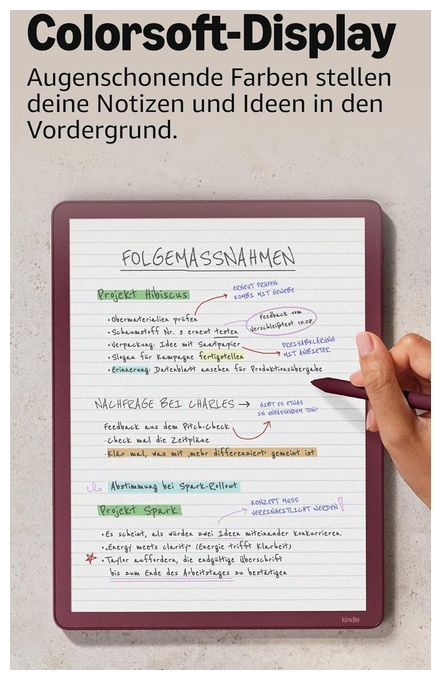 Colorsoft-Display
Augenschonende Farben stellen
deine Notizen und Ideen in den
Vordergrund.
FOLGEMASSNAHMEN
Projekt Hibiscus
ERNEUT PRÜFEN
KOMBI MIT GEWEBE
• Obermaterialien prüfen
• Schaumstoff Nr. 5 erneut testen
Feedback vom
Verschleißtest 10.08.
• Verpackung: Idee mit Saatpapier
• Slogan für Kampagne fertigstellen
PREISABKLÄRUNG
MIT ANBIETER
• Erinnerung: Datenblatt ansehen für Produktionsübergabe
NACHFRAGE BEI CHARLES →
GIBT ES ETWAS
IN UMFASSENDEM TON?
Feedback aus dem Pitch-Check
-Check mal die Zeitpläne
-Klär mal, was mit „mehr differenziert" gemeint ist
Abstimmung bei Spark-Rollout
Projekt Spark
KONZEPT MUSS
VEREINHEITLICHT WERDEN!
• Es scheint, als würden zwei Ideen miteinander konkurrieren.
• „Energy meets clarity" (Energie trifft Klarheit)
• Taylor auffordern, die endgültige Überschrift
bis zum Ende des Arbeitstages zu bestätigen
kindle